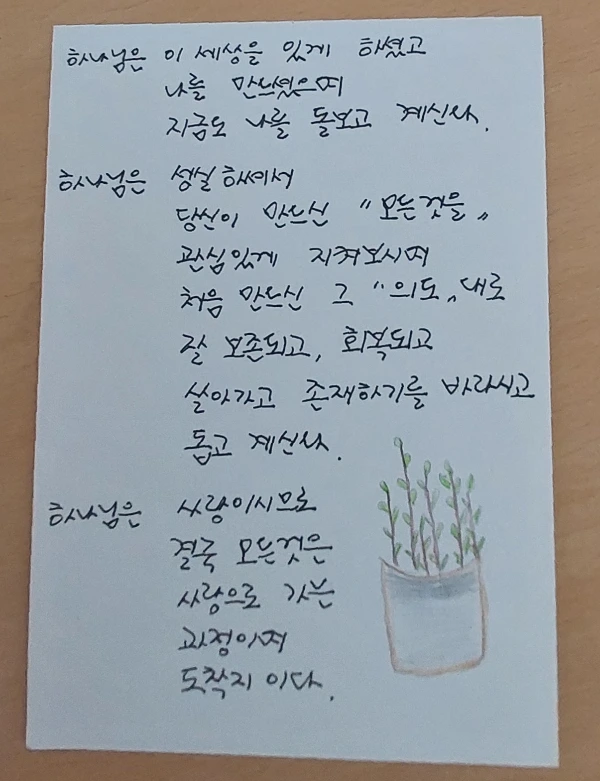 하나님은 이 세상을 있게 하셨고
나를 만드셨으며
지금도 나를 돌보고 계신다.
하나님은 성실하셔서
당신이 만드신 "모든것을"
관심있게 지켜보시며
처음 만드신 그 "의도"대로
잘 보존되고, 회복되고
살아가고 존재하기를 바라시고
돕고 계신다.
하나님은 사랑이시므로
결국 모든것은
사랑으로 가는
과정이며
도착지 이다.